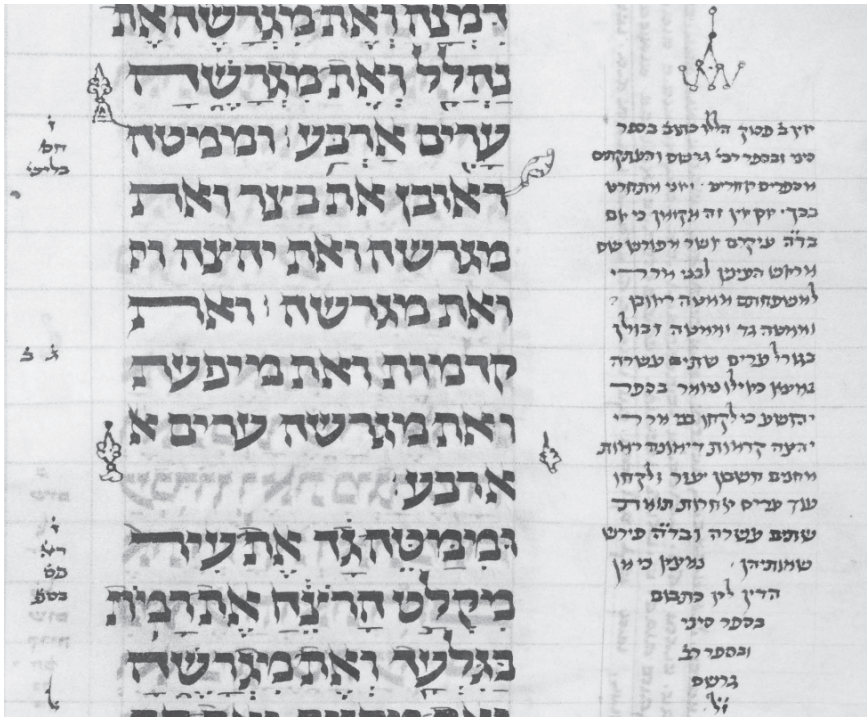 דמנה ואת מגרשה את
נהלל ואת מגרשה
ערים ארבע׃ וממטה
ראובן את בצר ואת
מגרשה ואת יהצה וי
ואת מגרשה׃ ואת
קדמות ואת מיפעת
ואת מגרשה ערים א
ארבע׃
וממטה גד את עיר
מקלט הרצח את רמות
בגלעד ואת מגרשה
פסוק׳ הללו כתוב׳ בספר
סיני ובספר רבי׳ גרשם והעתקתים
מספרים אחרים ׳ ואני מתחרט
בכך ׳ אין זה מקומן כי אם
בד״ה עיקרם אשר מפורש שם
מראש העינין לבני מררי
למשפחתם ממטה ראובן
וממטה גד וממטה זבולן
בגורל ערים שתים עשרה
נמצא כאילו אומר בספר
יהושע כי לקחו בני מררי
יהצה קדמות דימונה רמות
מחנים חשבון יעזר ולקחו
עוד ערים אחרות
שתים עשרה ובד״ה פירש
שמותיהן ׳ נמצא כי מן
הדין אין כתבום
בספר סיני
ובספר רב׳
גרשם
ז״ל
ג ב